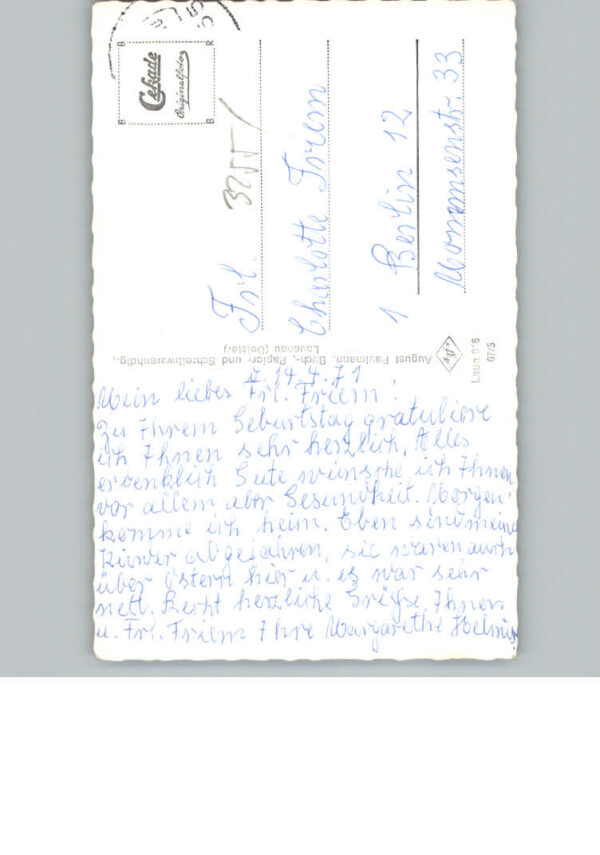 Cekade
Originalfoto
B R
B B
3255/
Frl.
Charlotte Friem
1 Berlin 12
Mommsenstr. 33
August Paulmann, Buch-, Papier- und Schreibwarenhdlg.,
Lauenau (Deister)
Laun 016
67/S
14.4.71
Mein liebes Frl. Friem!
Zu Ihrem Geburtstag gratuliere
ich Ihnen sehr herzlich. Alles
erdenklich Gute wünsche ich Ihnen
vor allem aber Gesundheit. Morgen
komme ich heim. Eben sind meine
Kinder abgefahren, sie waren auch
über Ostern hier u. es war sehr
nett. Recht herzliche Grüße Ihnen
u. Frl. Friem Ihre Margarethe